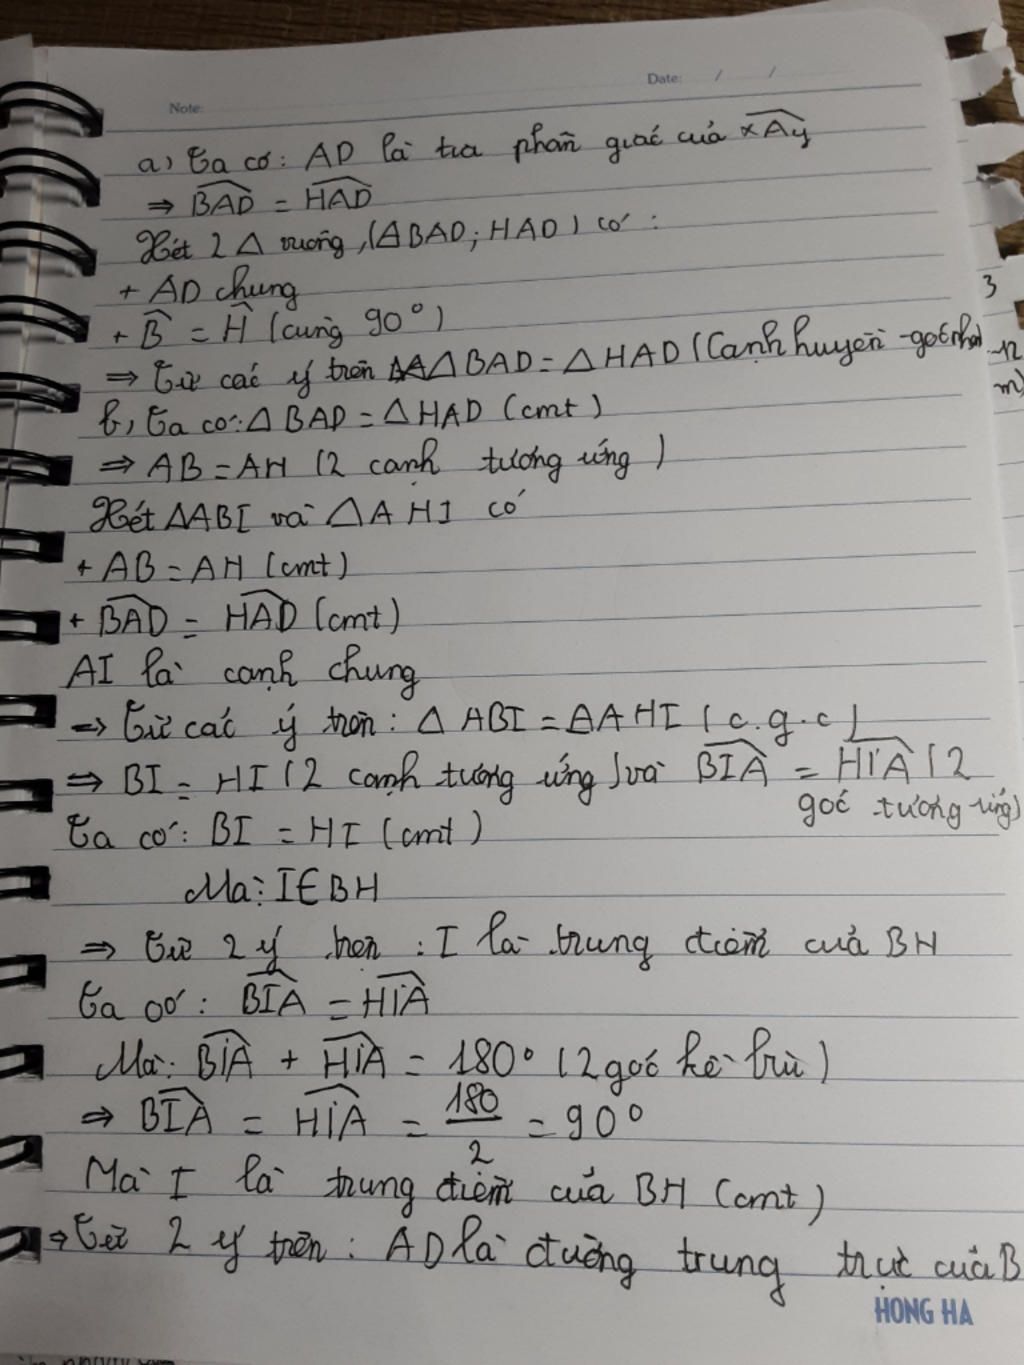 Note:
Date: / /
a) Ta có: AD là tia phân giác của xAy
⇒ BAD = HAD
Xét 2 Δ vuông, (ΔBAD; HAD) có:
+ AD chung
+ B = H (cùng 90°)
⇒ Từ các ý trên ΔBAD = ΔHAD (Cạnh huyền - góc nhọn
b, Ta có: ΔBAD = ΔHAD (cmt)
⇒ AB = AH (2 cạnh tương ứng)
Xét ΔABI và ΔAHI có
+ AB = AH (cmt)
+ BAD = HAD (cmt)
AI là cạnh chung
⇒ Từ các ý trên: ΔABI = ΔAHI (c.g.c)
⇒ BI = HI (2 cạnh tương ứng) và BIA = HIA (2
góc tương ứng)
Ta có: BI = HI (cmt)
Mà: I∈BH
⇒ Từ 2 ý trên: I là trung điểm của BH
Ta có: BIA = HIA
Mà: BIA + HIA = 180° (2 góc kề bù)
⇒ BIA = HIA = 180/2 = 90°
Mà I là trung điểm của BH (cmt)
⇒ Từ 2 ý trên: AD là đường trung trực của B
HONG HA
3
-12
m)